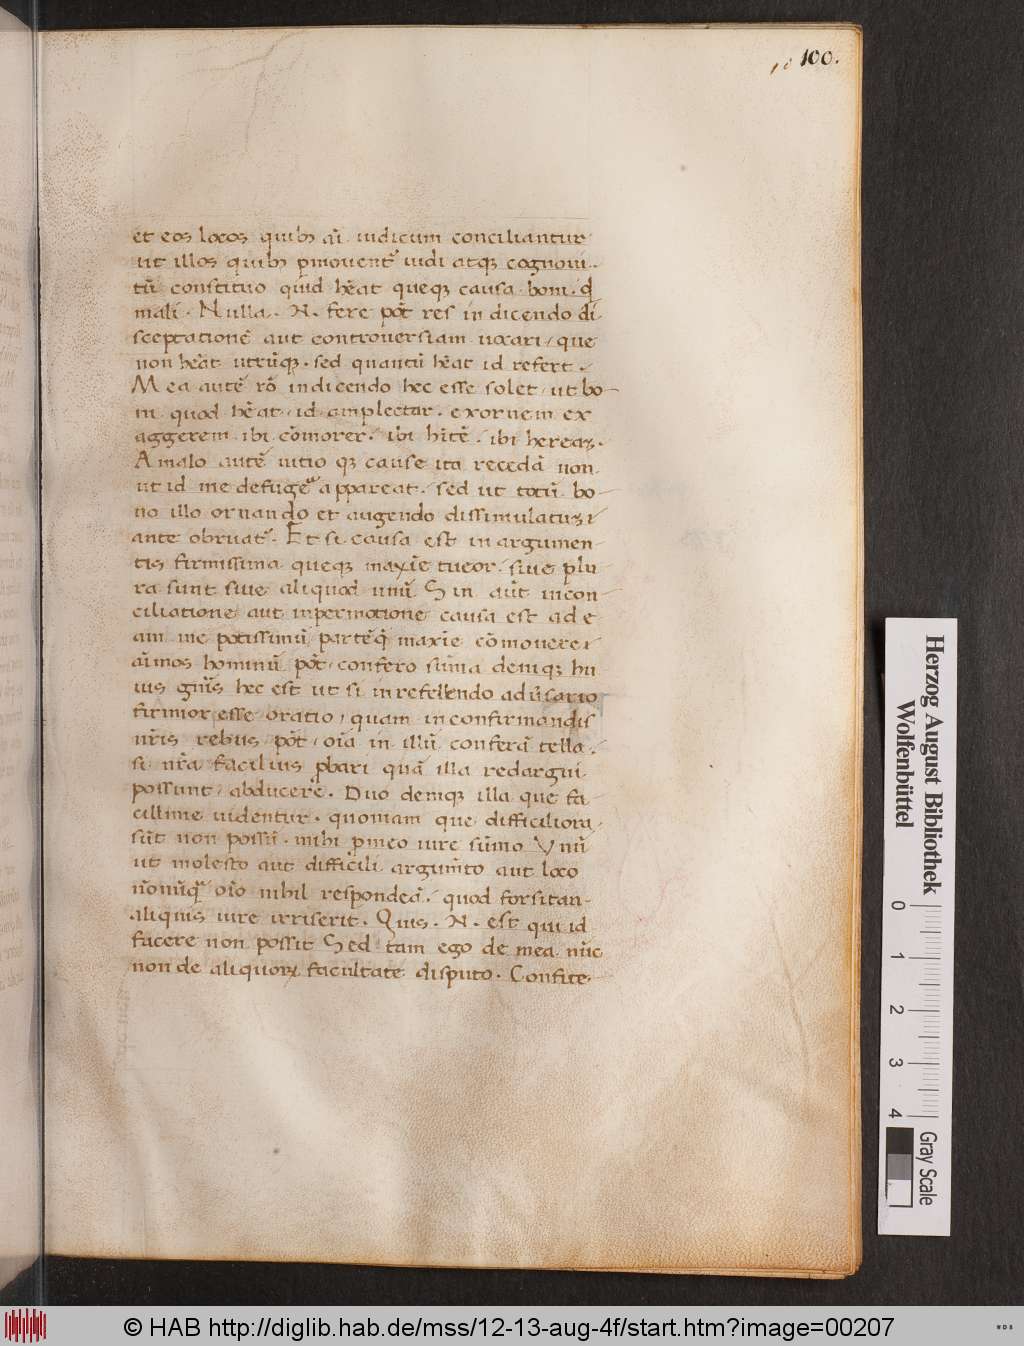 100.
et eos locos quibꝫ aĩ iudicum conciliantur
ut illos quibꝫ pmouent᷑ iudi atqꝫ cognoui.
tũ constituo quid hẽat queqꝫ causa boni. qd
mali. Nulla. N. fere põt res in dicendo di
sceptationẽ aut controuersiam uocari, que
non hẽat utrũqꝫ. sed quantũ hẽat id refert.
Mea autẽ rõ in dicendo hec esse solet, ut bo-
ni quod hẽat, id amplectar. exornem ex
aggerem ibi cõmorer. ibi hitẽ. ibi hereaꝫ.
A malo autẽ uitio qꝫ cause ita recedã non
ut id me defugeᷓ appareat. sed ut totũ bo-
no illo ornando et augendo dissimulatuꝫ
ante obruat᷑. Et si causa est in argumen-
tis firmissima queqꝫ maxiẽ tueor. siue plu
ra sunt siue aliquod unũ. Sin aũt in con-
ciliatione aut in permotione causa est ad e
am me potissimũ partẽ q̃ maxiẽ cõmouere
aĩmos hominũ põt, confero sũma deniqꝫ hu
ius gñis hec est ut si in refellendo adũsario
firmior esse oratio, quam in confirmandis
nr̃is rebus põt, oĩa in illũ conferã tella.
si nr̃a facilius pbari quã illa redargui
possunt, abducere. Duo deniqꝫ illa que fa
cillime uidentur. quoniam que difficiliora
sũt non possũ. mihi p meo iure sũmo Vnũ
ut molesto aut difficili argum̃to aut loco
nõnũq̃ oĩo nihil respondeã. quod forsitan
aliquis iure irriserit. Quis. N. est qui id
facere non possit Sed tam ego de mea nũc
non de aliquorꝝ facultate disputo. Confite
Herzog August Bibliothek
Wolfenbüttel
0 1 2 3 4
Gray Scale
© HAB http://diglib.hab.de/mss/12-13-aug-4f/start.htm?image=00207